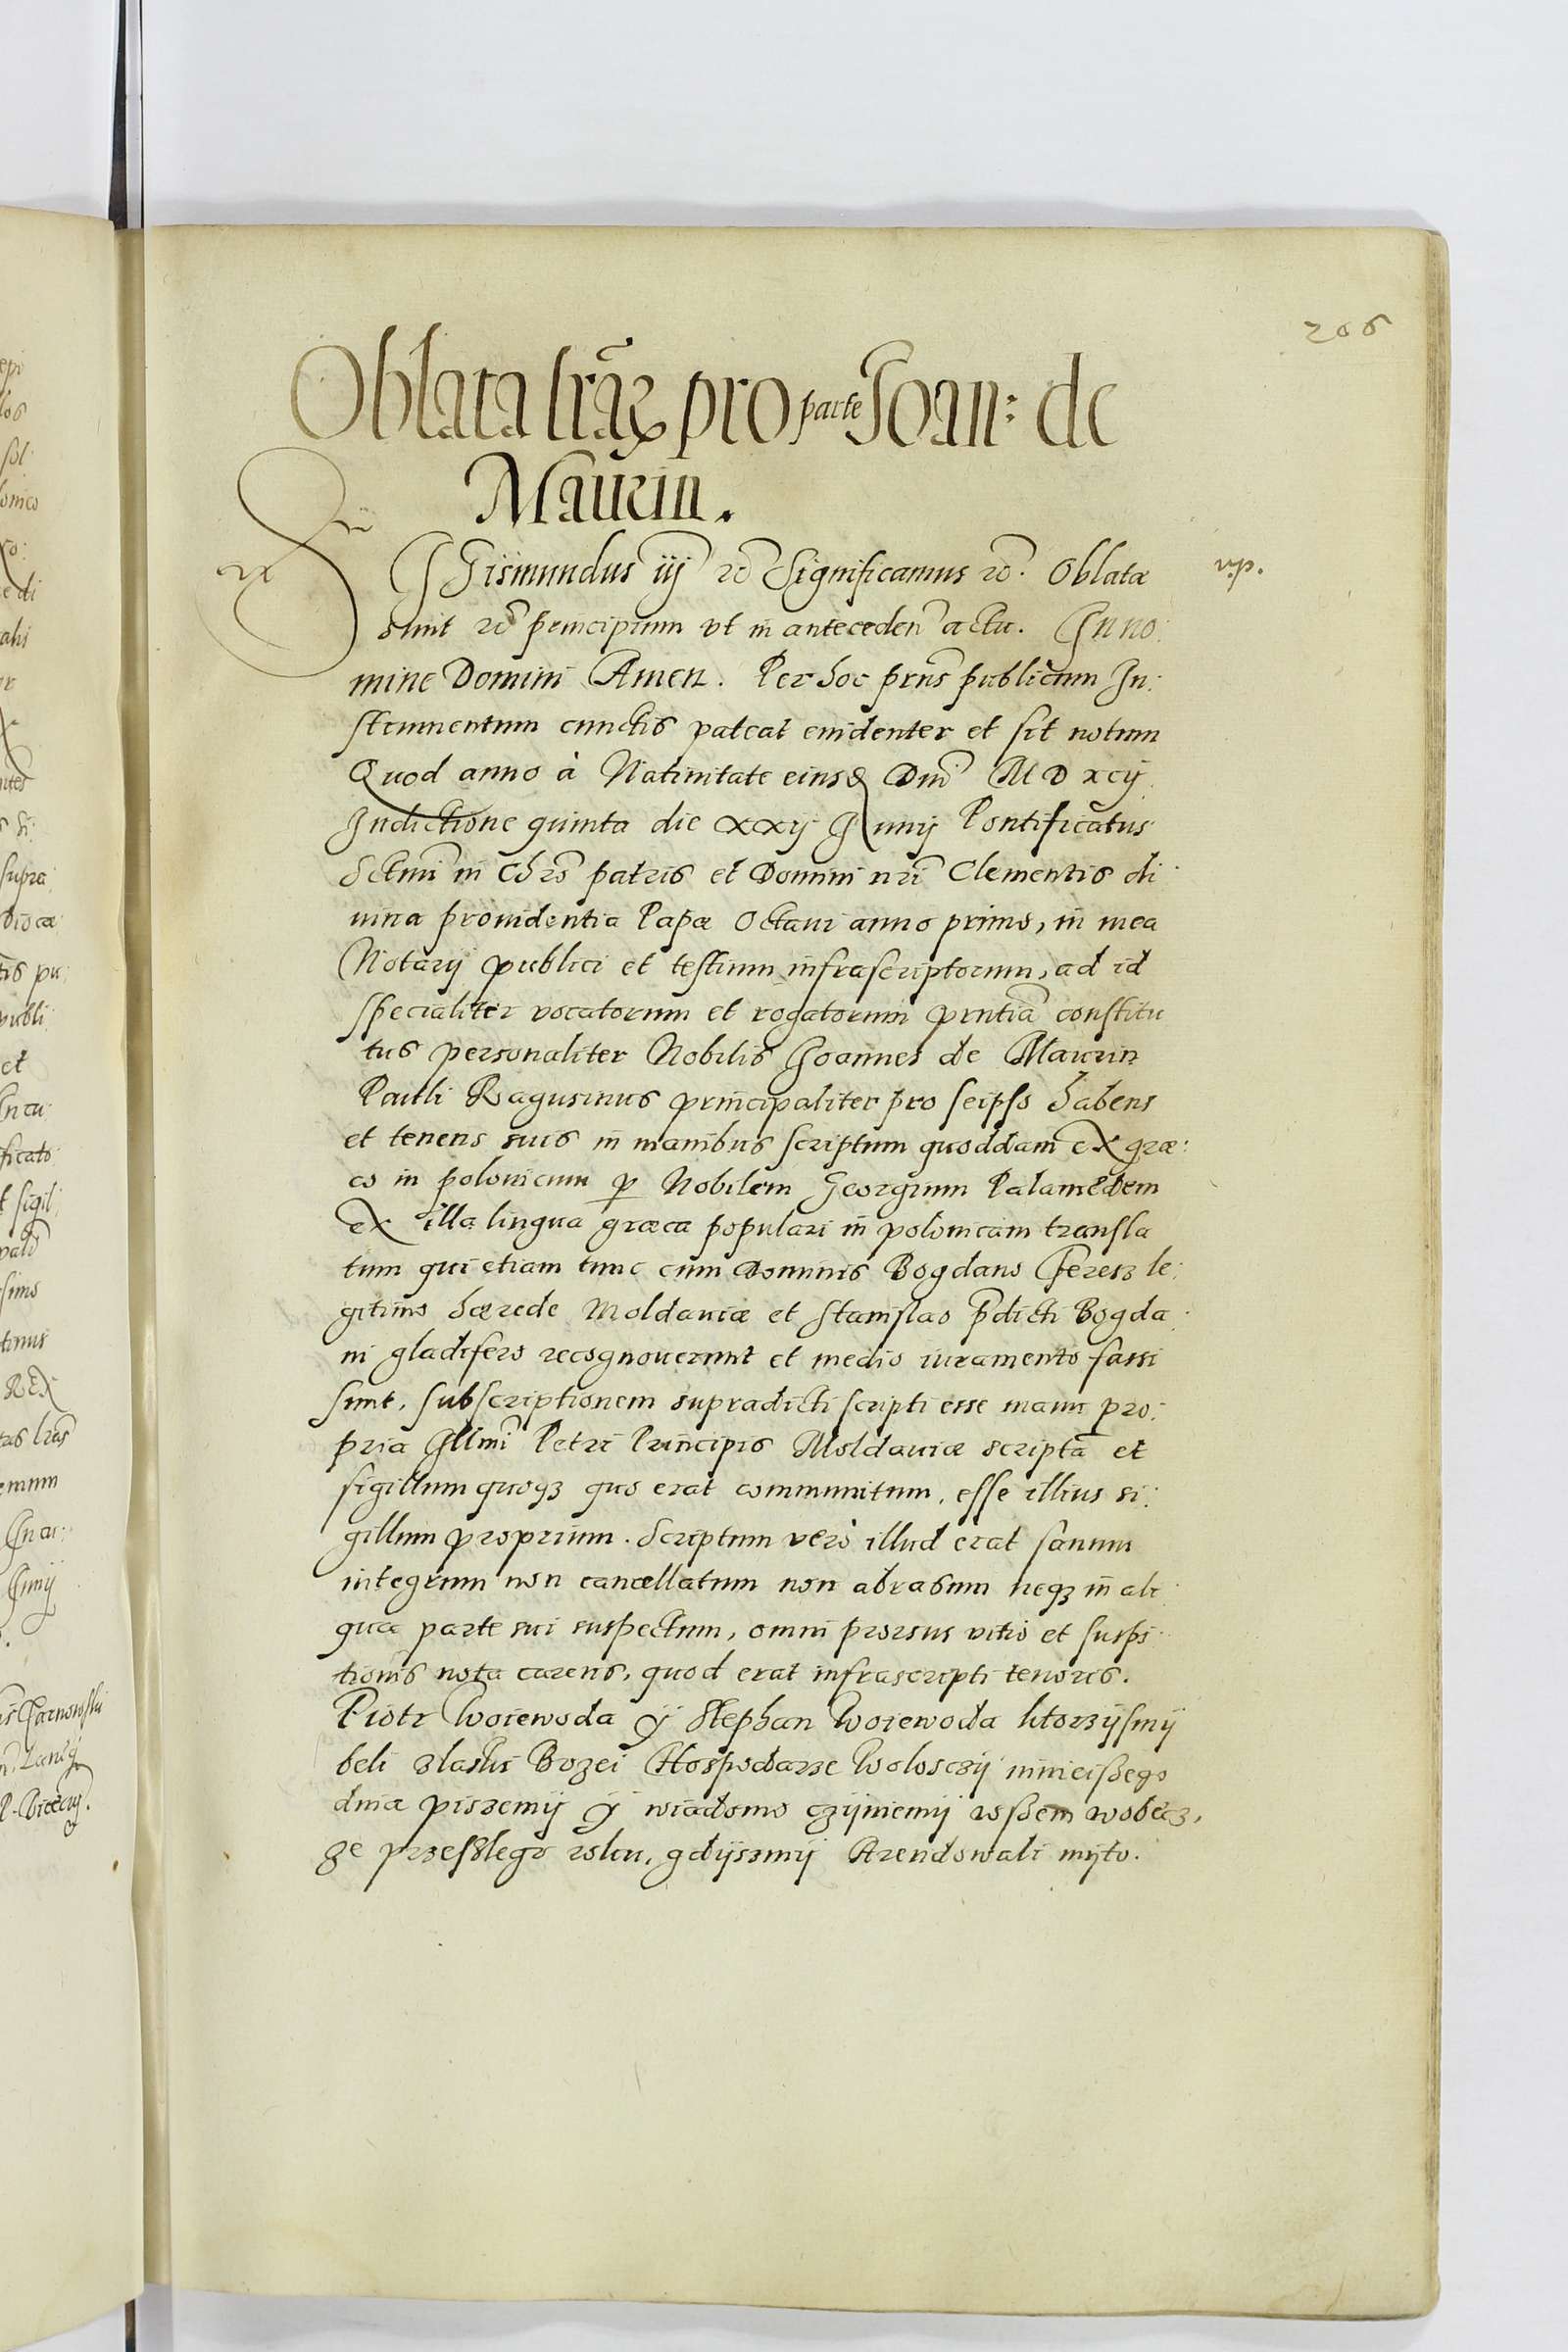 206
Oblata lrãꝝ pro parte Joan: de
Maurin.
SIGismundus iij rc̃ Significamus rc̃. Oblatæ
sunt rc̃ principium vt in anteceden̄ actu. In no:
mine Domini Amen. Per hoc prñs publicum In:
strumentum cunctis pateat euidenter et sit notum
Quod anno à Natiuitate eiusd Dnĩ MDxcij
Indictione quinta die xxij Iunij Pontificatus
Sctmi in Chrõ patris et Domini nrĩ Clementis di
uina prouidentia Papæ Octaui anno primo, in mea
Notarij publici et testium infrascriptorum, ad id
specialiter vocatorum et rogatorum prntiã constitu
tus personaliter Nobilis Joannes de Maurin
Pauli Ragusinus principaliter pro seipso habens
et tenens suis in manibus scriptum quoddam ex græ:
co in polonicum ꝑ Nobilem Georgium Palamedem
ex illa lingua græca populari in polonicam transla
tum qui etiam tunc cum Dominis Bogdano Heresz le:
gitimo hærede Moldauiæ et Stanislao p̃dicti Bogda:
ni gladifero recognouerunt et medio iuramento fassi
sunt, subscriptionem supradicti scripti esse manu pro:
pria Illmĩ Petri Principis Moldauiæ scriptã et
sigillum quoqz quo erat communitum, esse illius si:
gillum proprium. Scriptum verò illud erat sanum
integrum non cancellatum non abrasum neqz in ali:
qua parte sui suspectum, omni prorsus vitio et suspi:
tionis nota carens, quod erat infrascripti tenoris.
Piotr Woiewoda y Stephan Woiewoda ktorzÿsmÿ
beli z laski Bozei Hospodarze Woloschÿ niniejszego
dnia piszemÿ y wiadomo czÿniemÿ wszem wobecz,
ze przeszlego roku, gdÿszmÿ Arendowali mÿto.